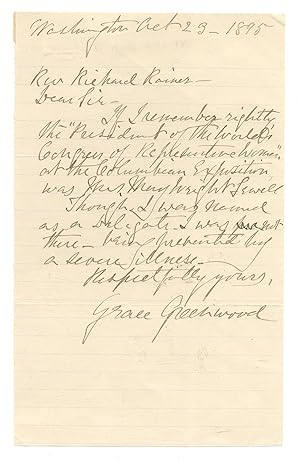 Washington Oct 23 - 1895
Rev Richard Rainer -
Dear Sir -
If I remember rightly
the "President of the World's
Congress of Representative Women"
at the Columbian Exposition
was Mrs. May Wright Sewell
Though I was named
as a delegate I was not
there - being prevented by
a severe illness -
Respectfully yours,
Grace Greenwood